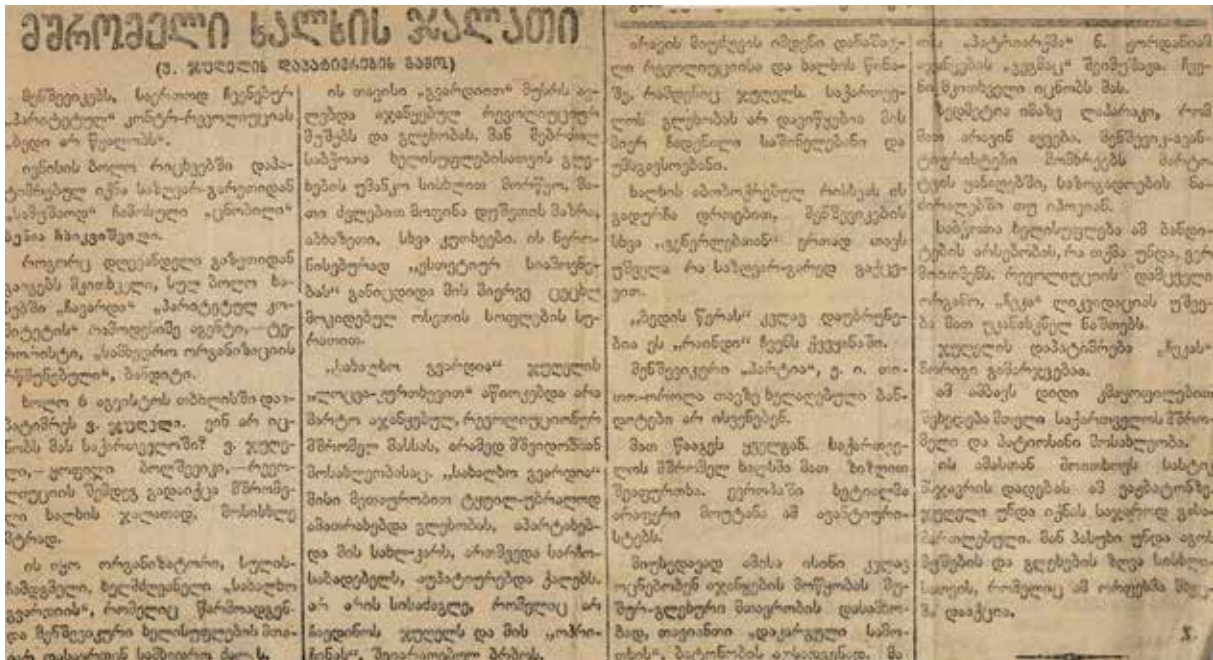 მშრომელი ხალხის ჯალათი
(ვ. ჯუღელის დაპატიმრების გამო)
მენშევიკებს, საერთოდ ჩვენებურ
„პარიტეტულ“ კონტრ-რევოლიუციას
„ბედი არ წყალობს“.
ივნისის ბოლო რიცხვებში დაპა-
ტიმრებულ იქნა საზღვარ-გარეთიდან
„სამუშაოდ“ ჩამოსული „ცნობილი“
ბენია ჩხიკვიშვილი.
როგორც დღევანდელი გაზეთიდან
გაიგებს მკითხველი, სულ ბოლო ხა-
ნებში „ჩავარდა“ „პარიტეტულ კო-
მიტეტის“ რამოდენიმე აგენტი,—ტე-
რორისტი, „სამხედრო ორგანიზაციის
რწმუნებული“, ბანდიტი.
ბოლო 6 აგვისტოს თბილისში და-
პატიმრეს ვ. ჯუღელი. ვინ არ იც-
ნობს მას საქართველოში? ვ. ჯუღე-
ლი,—ყოფილი ბოლშევიკი,—რევო-
ლიუციის შემდეგ გადაიქცა მშრომე-
ლი ხალხის ჯალათად, მოსისხლე
მტრად.
ის იყო ორგანიზატორი, სულის-
ჩამდგმელი, ხელმძღვანელი „სახალხო
გვარდიის“, რომელიც წარმოადგენ-
და მენშევიკური ხელისუფლების მთა-
ვარ დასაყრდენ სამხედრო ძალას.
ის თავისი „გვარდიით“ მუსრს ავ-
ლებდა აჯანყებულ რევოლიუციურ
მუშებს და გლეხობას. მან მებრძოლ
საბჭოთა ხელისუფლებისათვის გლე-
ხების უმანკო სისხლით მორწყო, მა-
თი ძვლებით მოფინა დუშეთის მაზრა,
აბხაზეთი, სხვა კუთხეები. ის ნერო-
ნისებურად „ესთეტიურ სიამოვნე-
ბას“ განიცდიდა მის მიერვე ცეცხლ
მოკიდებულ ოსეთის სოფლების სუ-
რათით.
„სახალხო გვარდია“ ჯუღელის
„ლოცვა-კურთხევით“ აწიოკებდა არა
მარტო აჯანყებულ, რევოლიუციონურ
მშრომელ მასსას, არამედ მშვიდობიან
მოსახლეობასაც. „სახალხო გვარდია“
მისი მეთაურობით ტყვილ-უბრალოდ
ამათრახებდა გლეხობას, აპარტახებ-
და მის სახლ-კარს, ართმევდა სარჩო-
საბადებელს, აუპატიურებდა ქალებს.
არ არის სისაძაგლე, რომელიც არ
ჩაედინოს ჯუღელს და მის „ოპრი-
ჩინას“, შეიარაღებულ ბრბოს.
არავის მიუძღვის იმდენი დანაშაუ-
ლი რევოლიუციისა და ხალხის წინა-
შე, რამდენიც ჯუღელს. საქართვე-
ლოს გლეხობას არ დავიწყებია მის
მიერ ჩადენილი საშინელებანი და
უმაგავსოებანი.
ხალხის აბობოქრებულ რისხვას ის
გადურჩა დროებით, მენშევიკების
სხვა „გენერლებთან“ ერთად თავს
უშველა რა საზღვარ-გარედ გაქცე-
ვით.
„ბედის წერას“ კვლავ დაუბრუნე-
ბია ეს „რაინდი“ ჩვენს ქვეყანაში.
მენშევიკური „პარტია“, ე. ი. თი-
თო-ოროლა თავზე ხელაღებული ბან-
დიტები არ ისვენებენ.
მათ წააგეს ყველგან. საქართვე-
ლოს მშრომელ ხალხმა მათ ზიზღით
შეაფურთხა. ევროპაში ხეტიალმა
არაფერი მოუტანა ამ ავანტიურის-
ტებს.
მიუხედავად ამისა ისინი კვლავ
ოცნებობენ აჯანყების მოწყობას მუ-
შურ-გლეხური მთავრობის დასამხო-
ბად, თავიანთი „დაკარგული სამო-
თხის“, ბატონობის აღსადგენად. მა-
თმა „პატრიარქმა“ ნ. ჟორდანიამ
აჯანყების „გეგმაც“ შეიმუშავა. ჩვე-
ნი მკითხველი იცნობს მას.
ზედმეტია იმაზე ლაპარაკი, რომ
მათ არავინ აყვება. მენშევიკ-ავან-
ტიურისტები მომხრეებს მარტო
ტყის ყაჩაღებში, საზოგადოების ნა-
ძირალებში თუ იპოვიან.
საბჭოთა ხელისუფლება ამ ბანდი-
ტების არსებობას, რა თქმა უნდა, ვერ
მოითმენს. რევოლუციის დამცველი
ორგანო, „ჩეკა“ ლიკვიდაციას უშვე-
ბა მათ უკანასკნელ ნაშთებს.
ჯუღელის დაპატიმრება „ჩეკას“
მორიგი გამარჯვებაა.
ამ ამბავს დიდი კმაყოფილებით
შეხვდება მთელი საქართველოს მშრო-
მელი და პატიოსანი მოსახლეობა.
ის ამასთან მოითხოვს სასტიკ
მსჯავრის დადებას ამ ვაჟბატონზე.
ჯუღელი უნდა იქნას საჯაროდ გასა-
მართლებული. მან პასუხი უნდა აგოს
მუშების და გლეხების ზღვა სისხლი-
სათვის, რომელიც ამ ორგიებმა
დააქცია.
X.